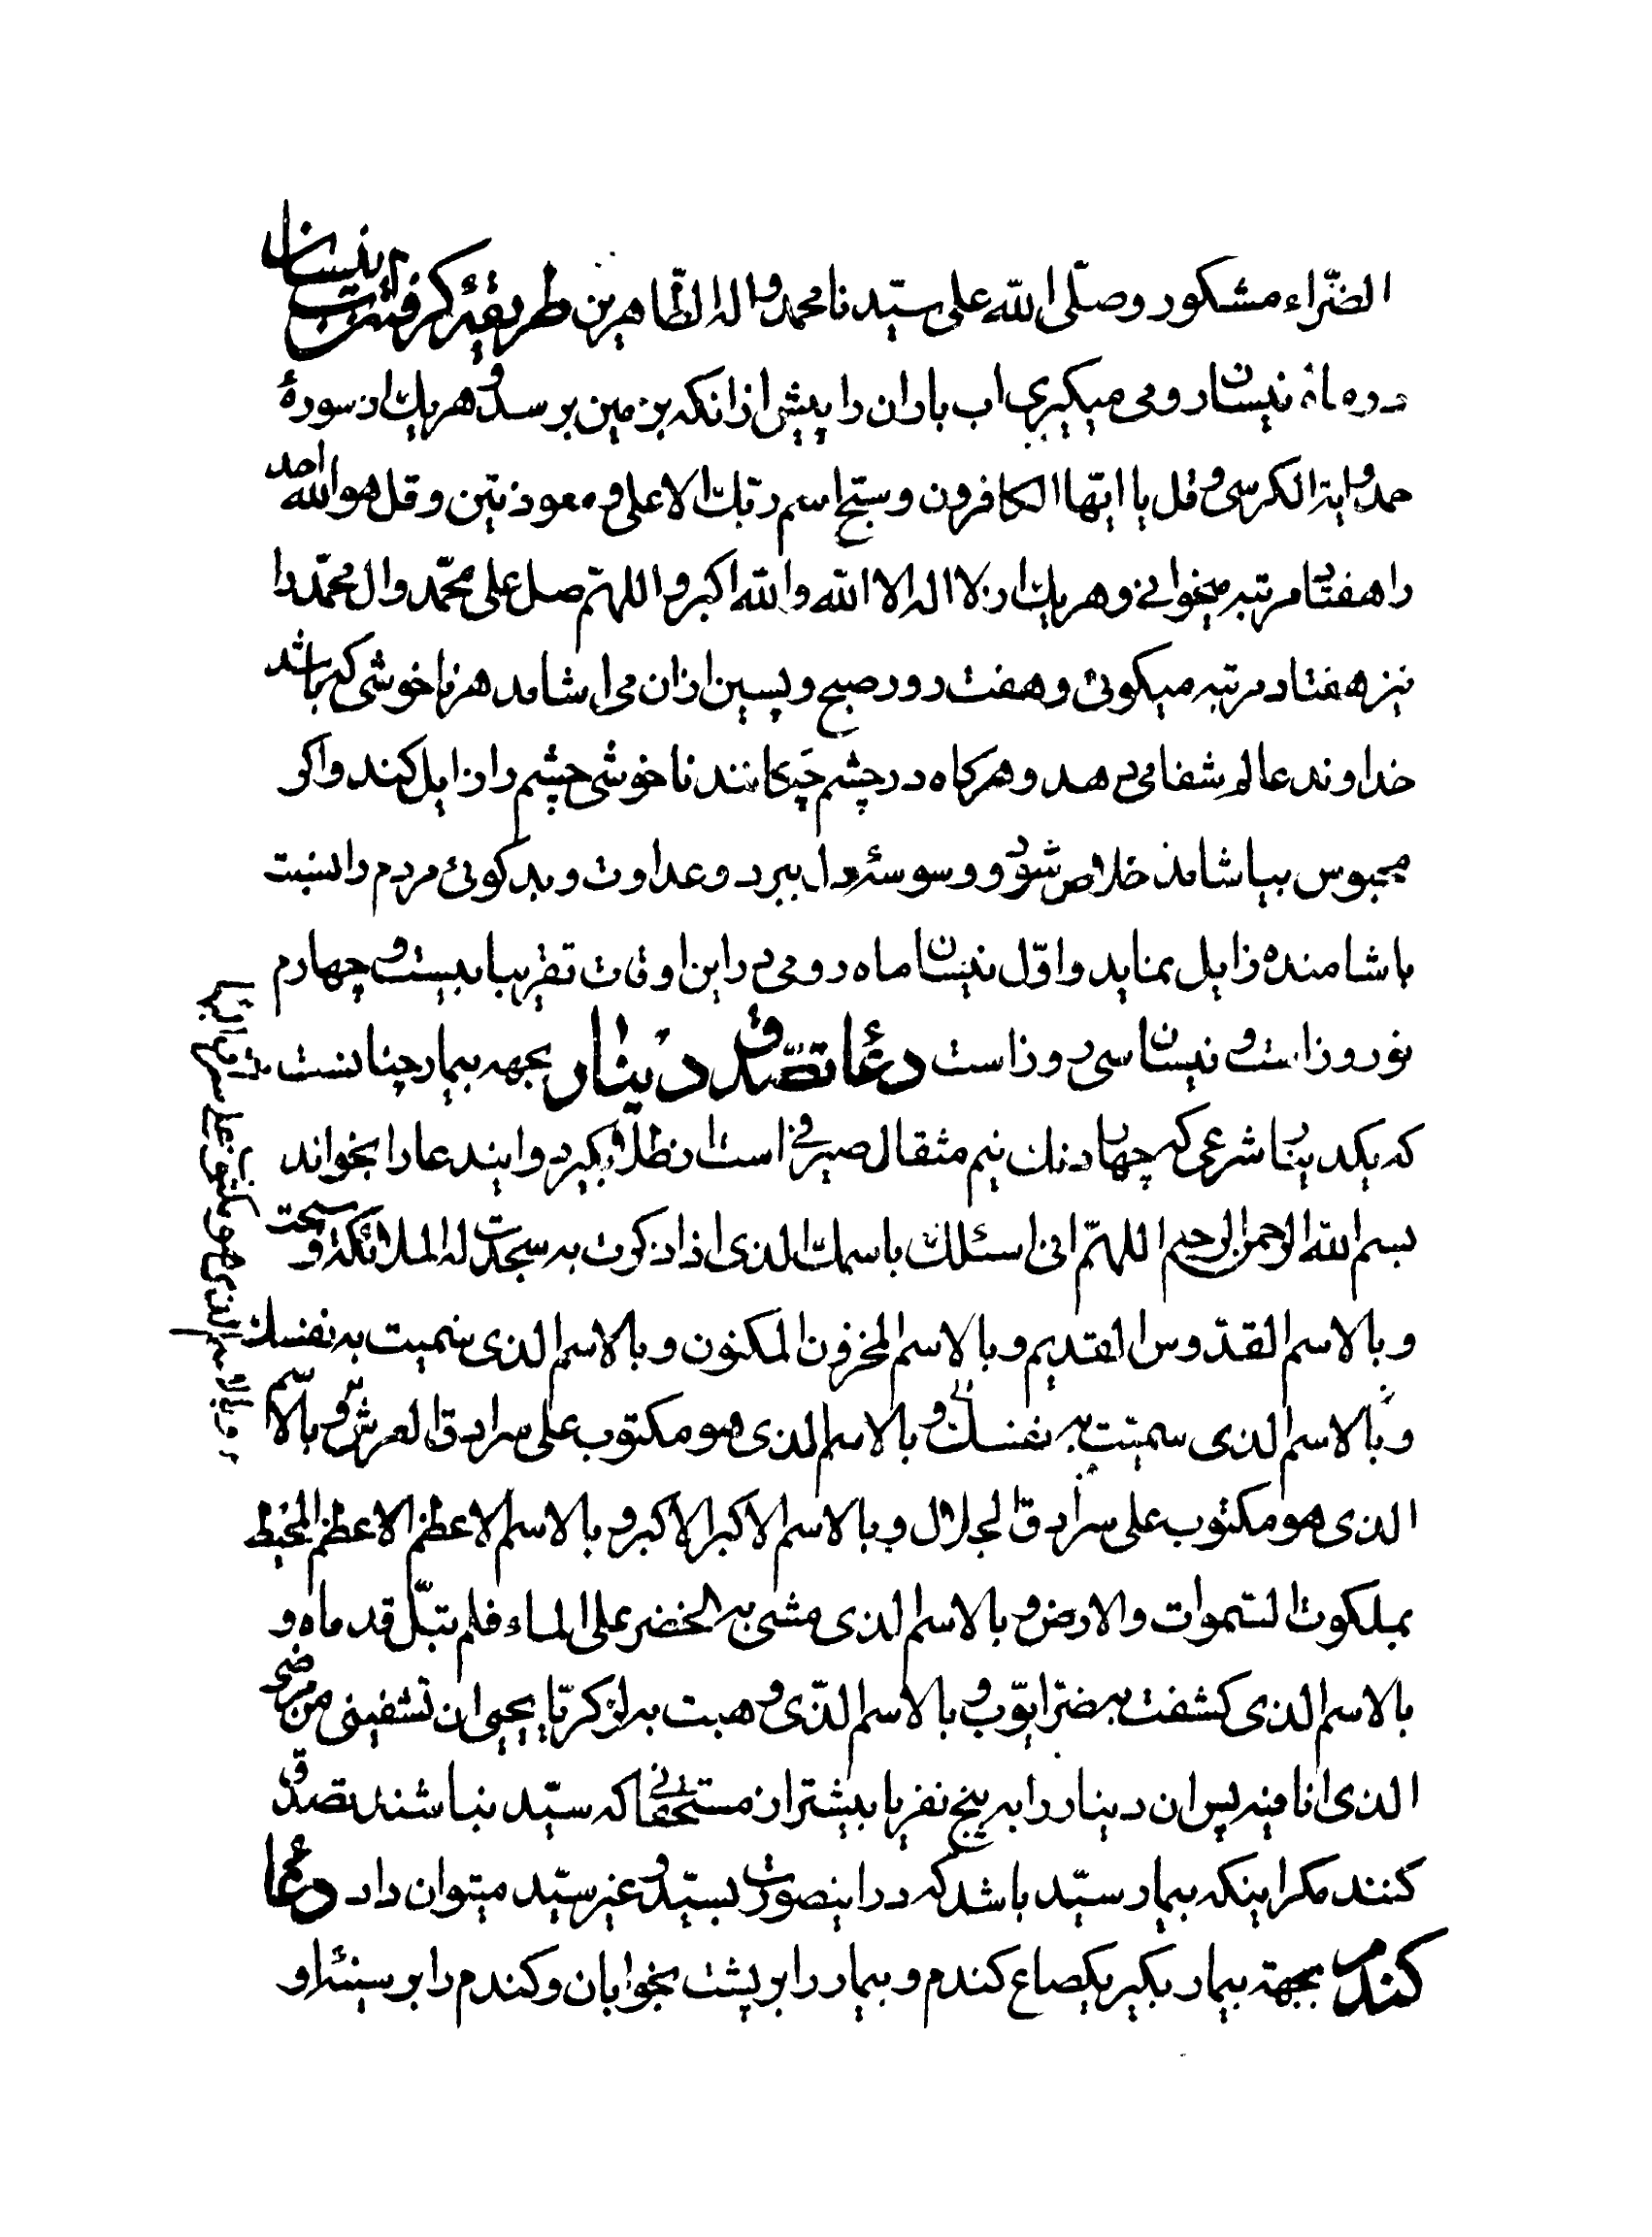 الضّرّاء مشكور وصلّى الله على سيّدنا محمد واله الطّاهرين طريقهٔ گرفتن آب نيسان
در ماه نيسان رومى ميگيرى اب باران را پيش از انكه بزمين برسد و هر يك از سورهٔ
حمد و اية الكرسى و قل يا ايّها الكافرون و سبّح اسم ربّك الاعلى و معوذتين و قل هو الله احد
را هفتاد مرتبه ميخوانى و هريك از لا اله الا الله و الله اكبر و اللهمّ صل على محمّد وال محمّد را
نيز هفتاد مرتبه ميكوئى و هفت روز صبح و پسين ازان مى اشامد هر ناخوشى كه باشد
خداوند عالم شفا مى دهد و هر كاه در چشم چكانند ناخوشى چشم را زايل كند واكر
محبوس بياشامد خلاص شود و وسوسهٔ دل ببرد و عداوت و بدكوئى مردم را نسبت
باشامنده زايل نمايد و اوّل نيسان ماه رومى در اين اوقات تقريبا بيست و چهارم
نوروز است و نيسان سى روز است دعاء تصدّق دينار بجهه بيمار چنانست
كه يكدينار شرعى كه چهار دنك نيم مثقال صيرفى است از طلا بكيرد و ايندعا را بخواند
بسم الله الرحمن الرحيم اللهمّ انى اسئلك باسمك الذى اذا ذكرت به سجدت له الملائكة و سبّحت
و بالاسم القدّوس القديم و بالاسم المخزون المكنون و بالاسم الذى سميت به نفسك
و بالاسم الذى سميت به نفسك و بالاسم الذى هو مكتوب على سرادق العرش و بالاسم
الذى هو مكتوب على سرادق الجلال و بالاسم الاكبر الاكبر و بالاسم الاعظم الاعظم المحيط
بملكوت السّموات والارض و بالاسم الذى مشى به الخضر على الماء فلم تبتلّ قدماه و
بالاسم الذى كشفت به ضر ايّوب و بالاسم الذّى وهبت به لزكريّا يحيى ان تشفينى من مرضى
الذى انا فيه پس ان دينار را به پنج نفر يا بيشتر از مستحقانى كه سيّد نباشند تصدق
كنند مكر اينكه بيمار سيّد باشد كه در اينصورت بسيّد و غير سيّد ميتوان داد دعاء
كندم بجهة بيمار بكير يكصاع كندم و بيمار را بر پشت بخوابان و كندم را بر سينهٔ او
و بالاسم الذى هو مكتوب على سرادق البهاء